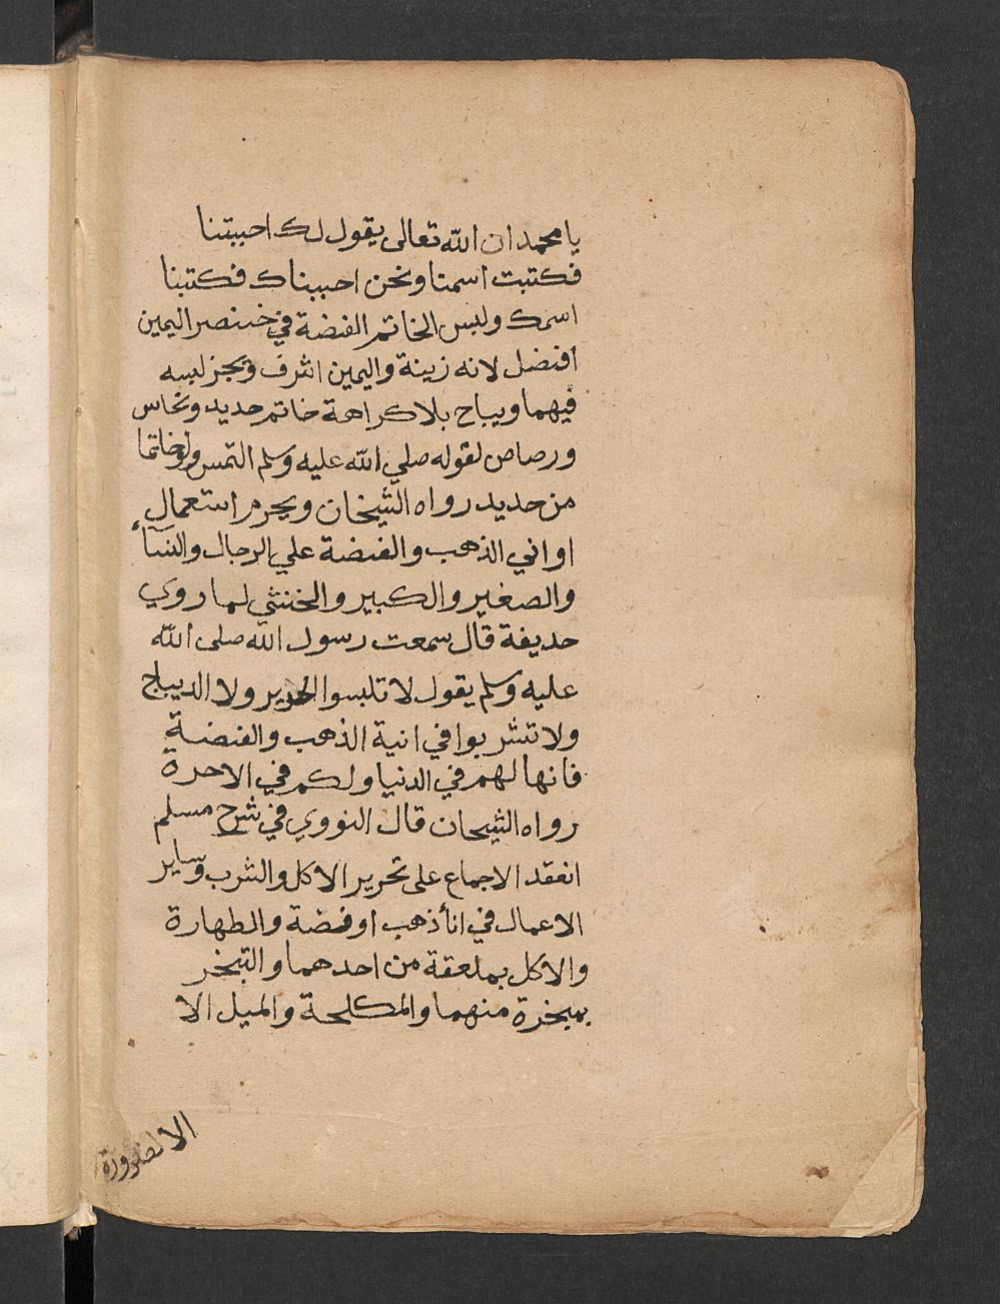 يا محمد ان الله تعالى يقول لك احببتنا
فكتبت اسمنا ونحن احببناك فكتبنا
اسمك ولبس الخاتم الفضة في خنصر اليمين
افضل لانه زينة واليمين اشرف ويجز لبسه
فيهما ويباح بلا كراهة خاتم حديد ونحاس
ورصاص لقوله صلي الله عليه وسلم التمس ولو خاتما
من حديد رواه الشيخان ويحرم استعمال
اواني الذهب والفضة علي الرجال والنسآء
والصغير والكبير والخنثي لما روي
حديفة قال سمعت رسول الله صلى الله
عليه وسلم يقول لا تلبسوا الحرير ولا الديباج
ولا تشربوا في انية الذهب والفضة
فانها لهم في الدنيا ولكم في الاحرة
رواه الشيحان قال النووي في شرح مسلم
انعقد الاجماع على تحرير الاكل والشرب وساير
الاعمال في انأ ذهب او فضة والطهارة
والاكل بملعقة من احدهما والتبخر
بمبخرة منهما والمكحلة والميل الا
الا لضرورة